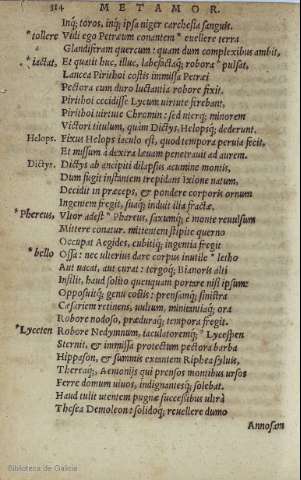 114 METAMOR.
Inq; toros, inq; ipsa niger carchesia sanguis.
*tollere Vidi ego Petræum conantem *euellere terra
Glandiferam quercum: quam dum complexibus ambit,
*iactat, Et quatit huc, illuc, labefactaq; robora *pulsat,
Lancea Pirithoi costis immissa Petræi
Pectora cum duro luctantia robore fixit.
Pirithoi cecidisse Lycum uirtute firebant,
Pirithoi uirtute Chromin: sed uterq; minorem
Victori titulum, quàm Dictys, Helopsq; dederunt.
Helops. Fixus Helops iaculo est, quod tempora peruia fecit,
Et missum à dextra læuam penetrauit ad aurem.
Dictys. Dictys ab ancipiti dilapsus acumine montis,
Dum fugit instantem trepidans Ixione natum,
Decidit in præceps, & pondere corporis ornum
Ingentem fregit, suaq; induit ilia fractæ.
*Phereus, Vltor adest *Phareus, saxumq; è monte reuulsum
Mittere conatur. mittentem stipite querno
Occupat Aegides, cubitiq; ingentia fregit
*bello Ossa: nec ulterius dare corpus inutile *letho
Aut uacat, aut curat: tergoq; Bianoris alti
Insilit, haud solito quenquam portare nisi ipsum:
Opposuitq; genu costis: prensamq; sinistra
Cæsariem retinens, uultum, minitantiaq; ora
Robore nodoso, præduraq; tempora fregit.
*Lyceten Robore Nedymnum, iaculatoremq; *Lycespen
Sternit, & immissa protectum pectora barba
Hippason, & summis exentem Ripheasyluis,
Thereaq;, Aemonijs qui prensos montibus ursos
Ferre domum uiuos, indignantesq; solebat.
Haud tulit utentem pugnæ successibus ultrà
Thesea Demoleon: solidoq; reuellere dumo
Annosam
Biblioteca de Galicia